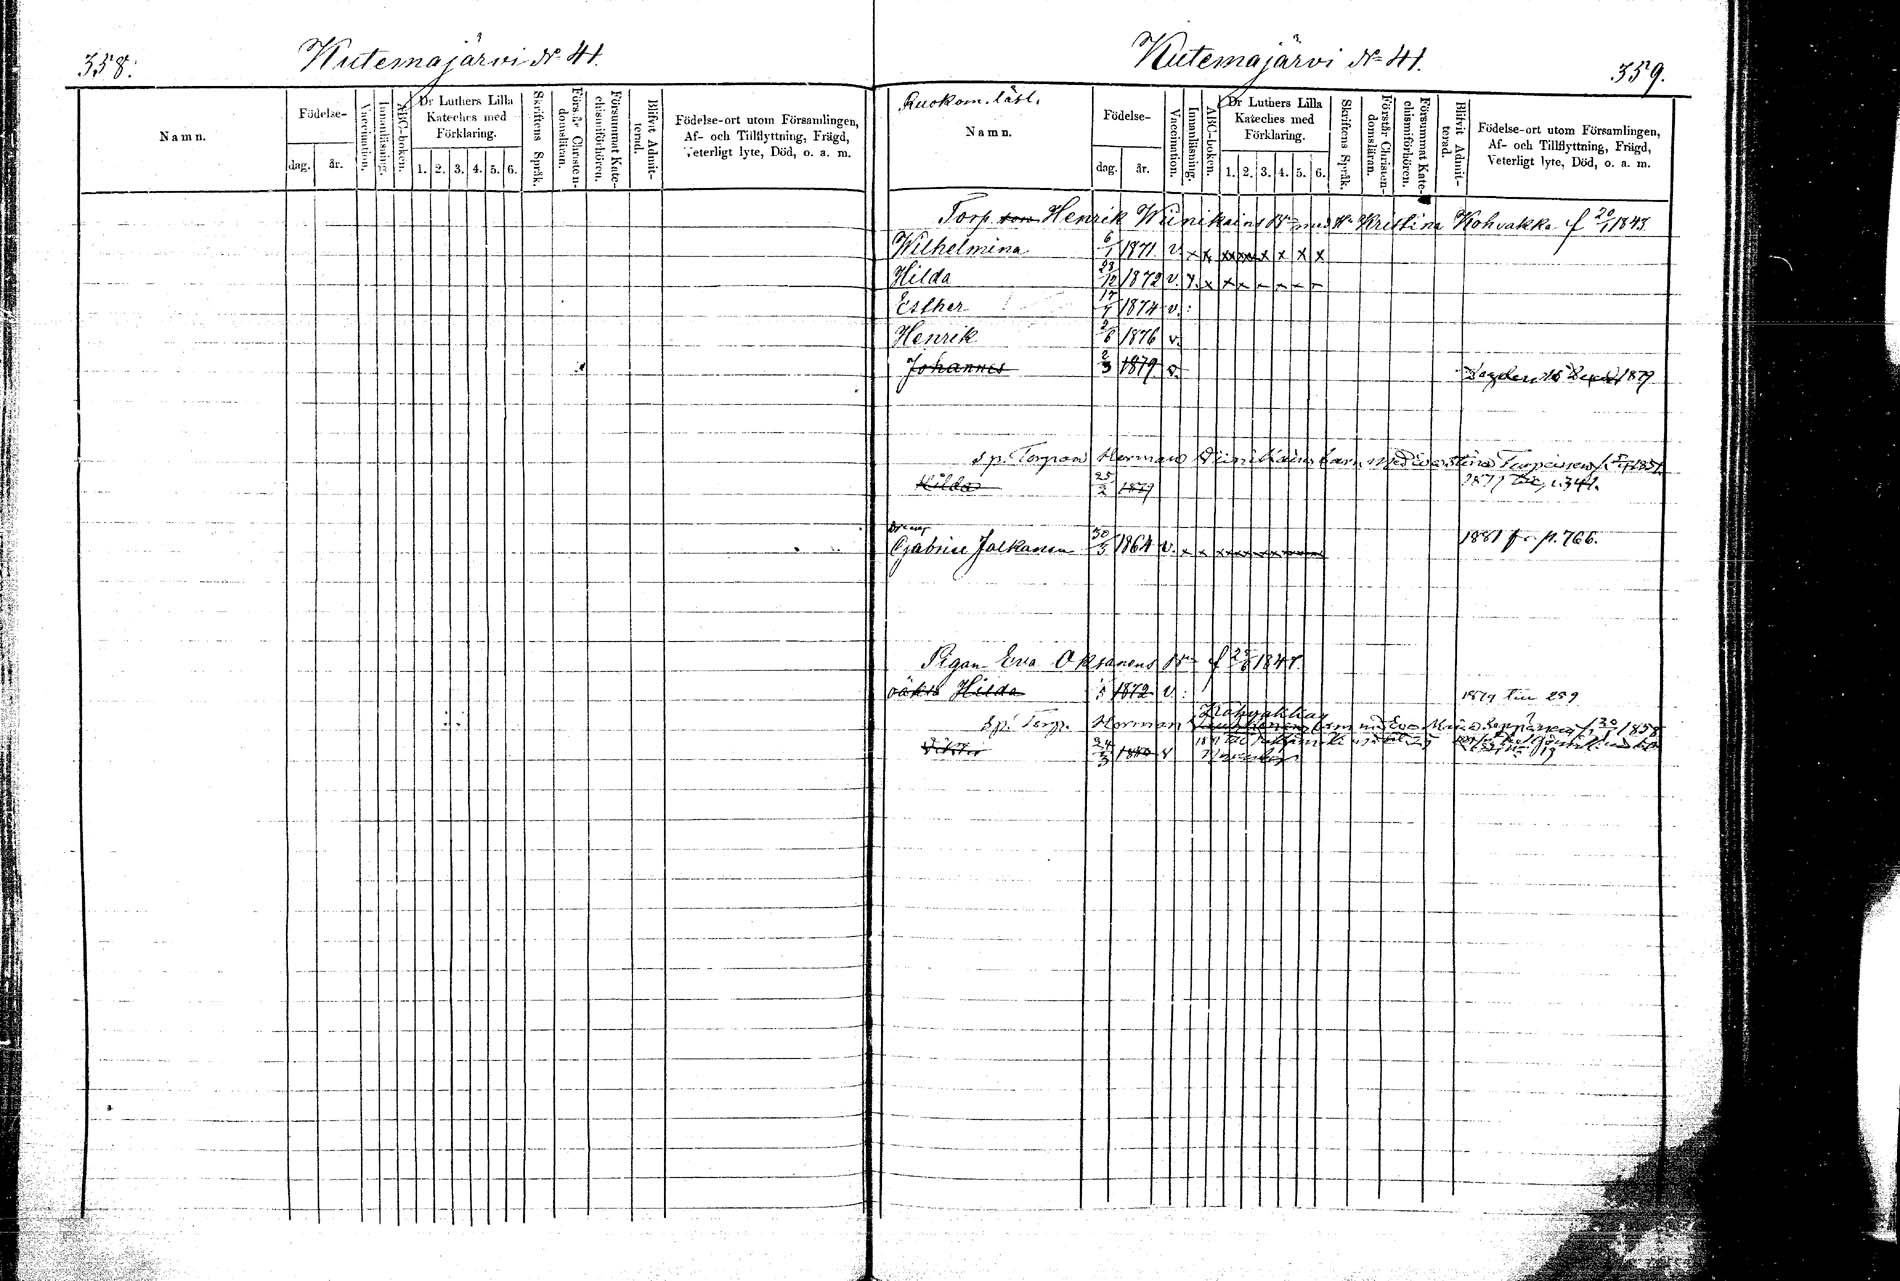 358.
Kutemajärvi No 41.
Namn.
Födelse-
dag. år.
Vaccination.
Innanläsning.
ABC-boken.
Dr Luthers Lilla Kateches med Förklaring.
1. 2. 3. 4. 5. 6.
Skriftens Språk.
Förstår Christendomsläran.
Försummat Katechismiförhören.
Blifvit Admitterad.
Födelse-ort utom Församlingen,
Af- och Tillflyttning, Frägd,
Veterligt lyte, Död, o. a. m.
Kutemajärvi No 41.
359.
Ruokom. läsl.
Namn.
Födelse-
dag. år.
Vaccination.
Innanläsning.
ABC-boken.
Dr Luthers Lilla Kateches med Förklaring.
1. 2. 3. 4. 5. 6.
Skriftens Språk.
Förstår Christendomsläran.
Försummat Katechismiförhören.
Blifvit Admitterad.
Födelse-ort utom Församlingen,
Af- och Tillflyttning, Frägd,
Veterligt lyte, Död, o. a. m.
Torp. Henrik Wiinikains Bn med H. Kristina Kohvakka f 20/1 1843.
Wilhelmina 6/1 1871 v. x x x x x x x x
Hilda 23/12 1872 v. x x
Esther 17/7 1874 v.
Henrik 2/8 1876 v.
Johannes 2/3 1879 v. 1879
sp. Torparen Herman Wiinikains barn med Turpeinen 1851
Hilda 25/2 1879 1879 till s. 341.
Dreng
Gabriel Jalkanen 30/3 1864 v. x x 1881 fr. p. 766.
Pigan Eva Oksanens Bn f 1841.
oäkta Hilda 1872 v. 1879 till 259
Kohvakkas
Sp. Torp. Herman barn m. Eva Maria 30/1 1858
24/3 1880 v